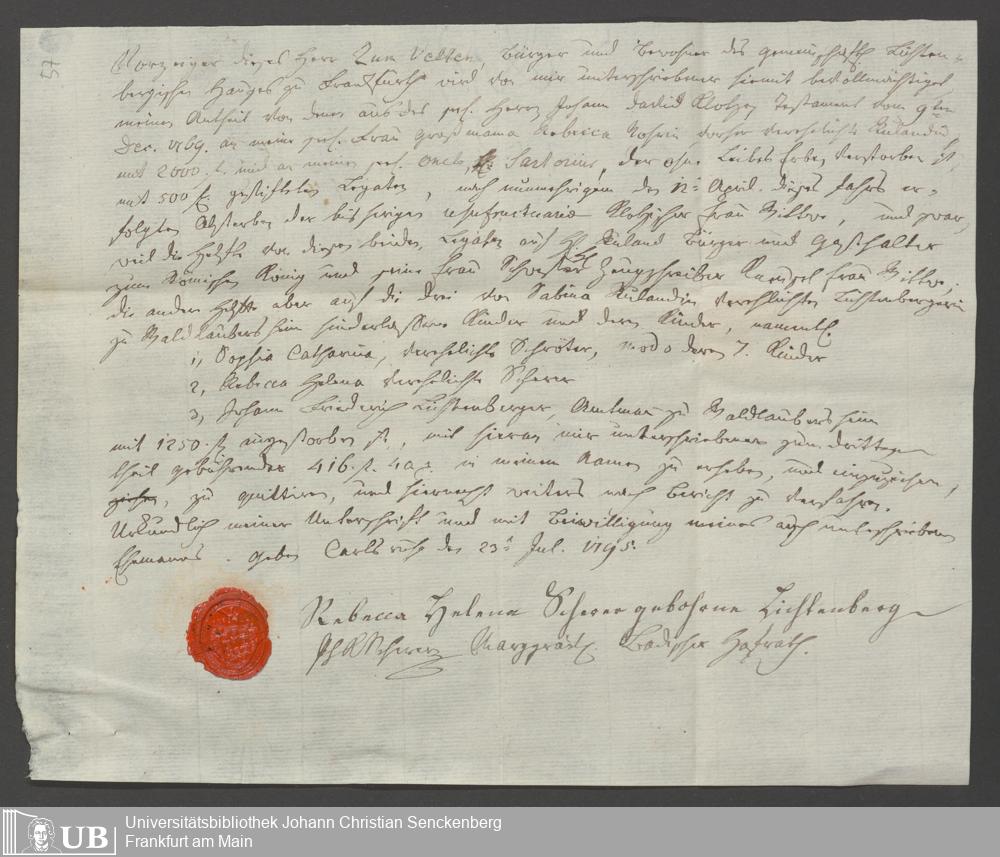 57
Vorzeiger dieses Herr Zum Velten, Bürger und Bewohner des gemeinschaftl. Lichten-
bergischen Hauses zu Frankfurth wird von mir unterschriebener hiemit bevollmächtiget
meinen Antheil von denen aus des seel. Herrn Johann David Klotzen Testament vom 9ten
Dec. 1769. an meine seel. Frau Großmama Rebecca vorher verehelichte Rulandin
mit 2000 f. und an meinen seel. Oncle, H. Sartorius, der ohne Leibes Erben verstorben ist,
mit 500 f. gestifteten Legaten, nach nunmehrigem den 12n April dieses Jahrs er-
folgten Absterben der bisherigen usufructuaria Klotzischen Frau Wittwe, und zwar,
weil die Helfte von diesen beiden Legaten auf H. Ruland Bürger und Gasthalter
zum Römischen König und seine Frau Schwester Zeugschreiber Frau Wittwe,
die andere Helfte aber auf die drei von Sabina Rulandin verehlichten Lichtenbergerin
zu Waldlaubersheim hinderlassene Kinder und deren Kinder, namentl.
1, Sophia Catharina, verehelichte Schröter, modo deren 7. Kinder
2, Rebecca Helena verehelichte Scherer
3, Johann Friederich Lichtenberger, Amtmann zu Waldlaubersheim
mit 1250. f. angestorben ist, mit hieran mir unterschriebener zum dritten
theil gebührender 416. f. 40 x. in meinem Namen zu erheben, und einzuziehen,
zu quittiren, und hiernach weiters nach Bericht zu verfahren.
Urkundlich meiner Unterschrift und mit Beiwilligung meines auch unterschriebenen
Ehemanns. Geben Carlsruhe den 23n Jul. 1795.
Rebecca Helena Scherer gebohrne Lichtenberg
Scherer Marggräfl. Badischer Hofrath.
UB
Universitätsbibliothek Johann Christian Senckenberg
Frankfurt am Main